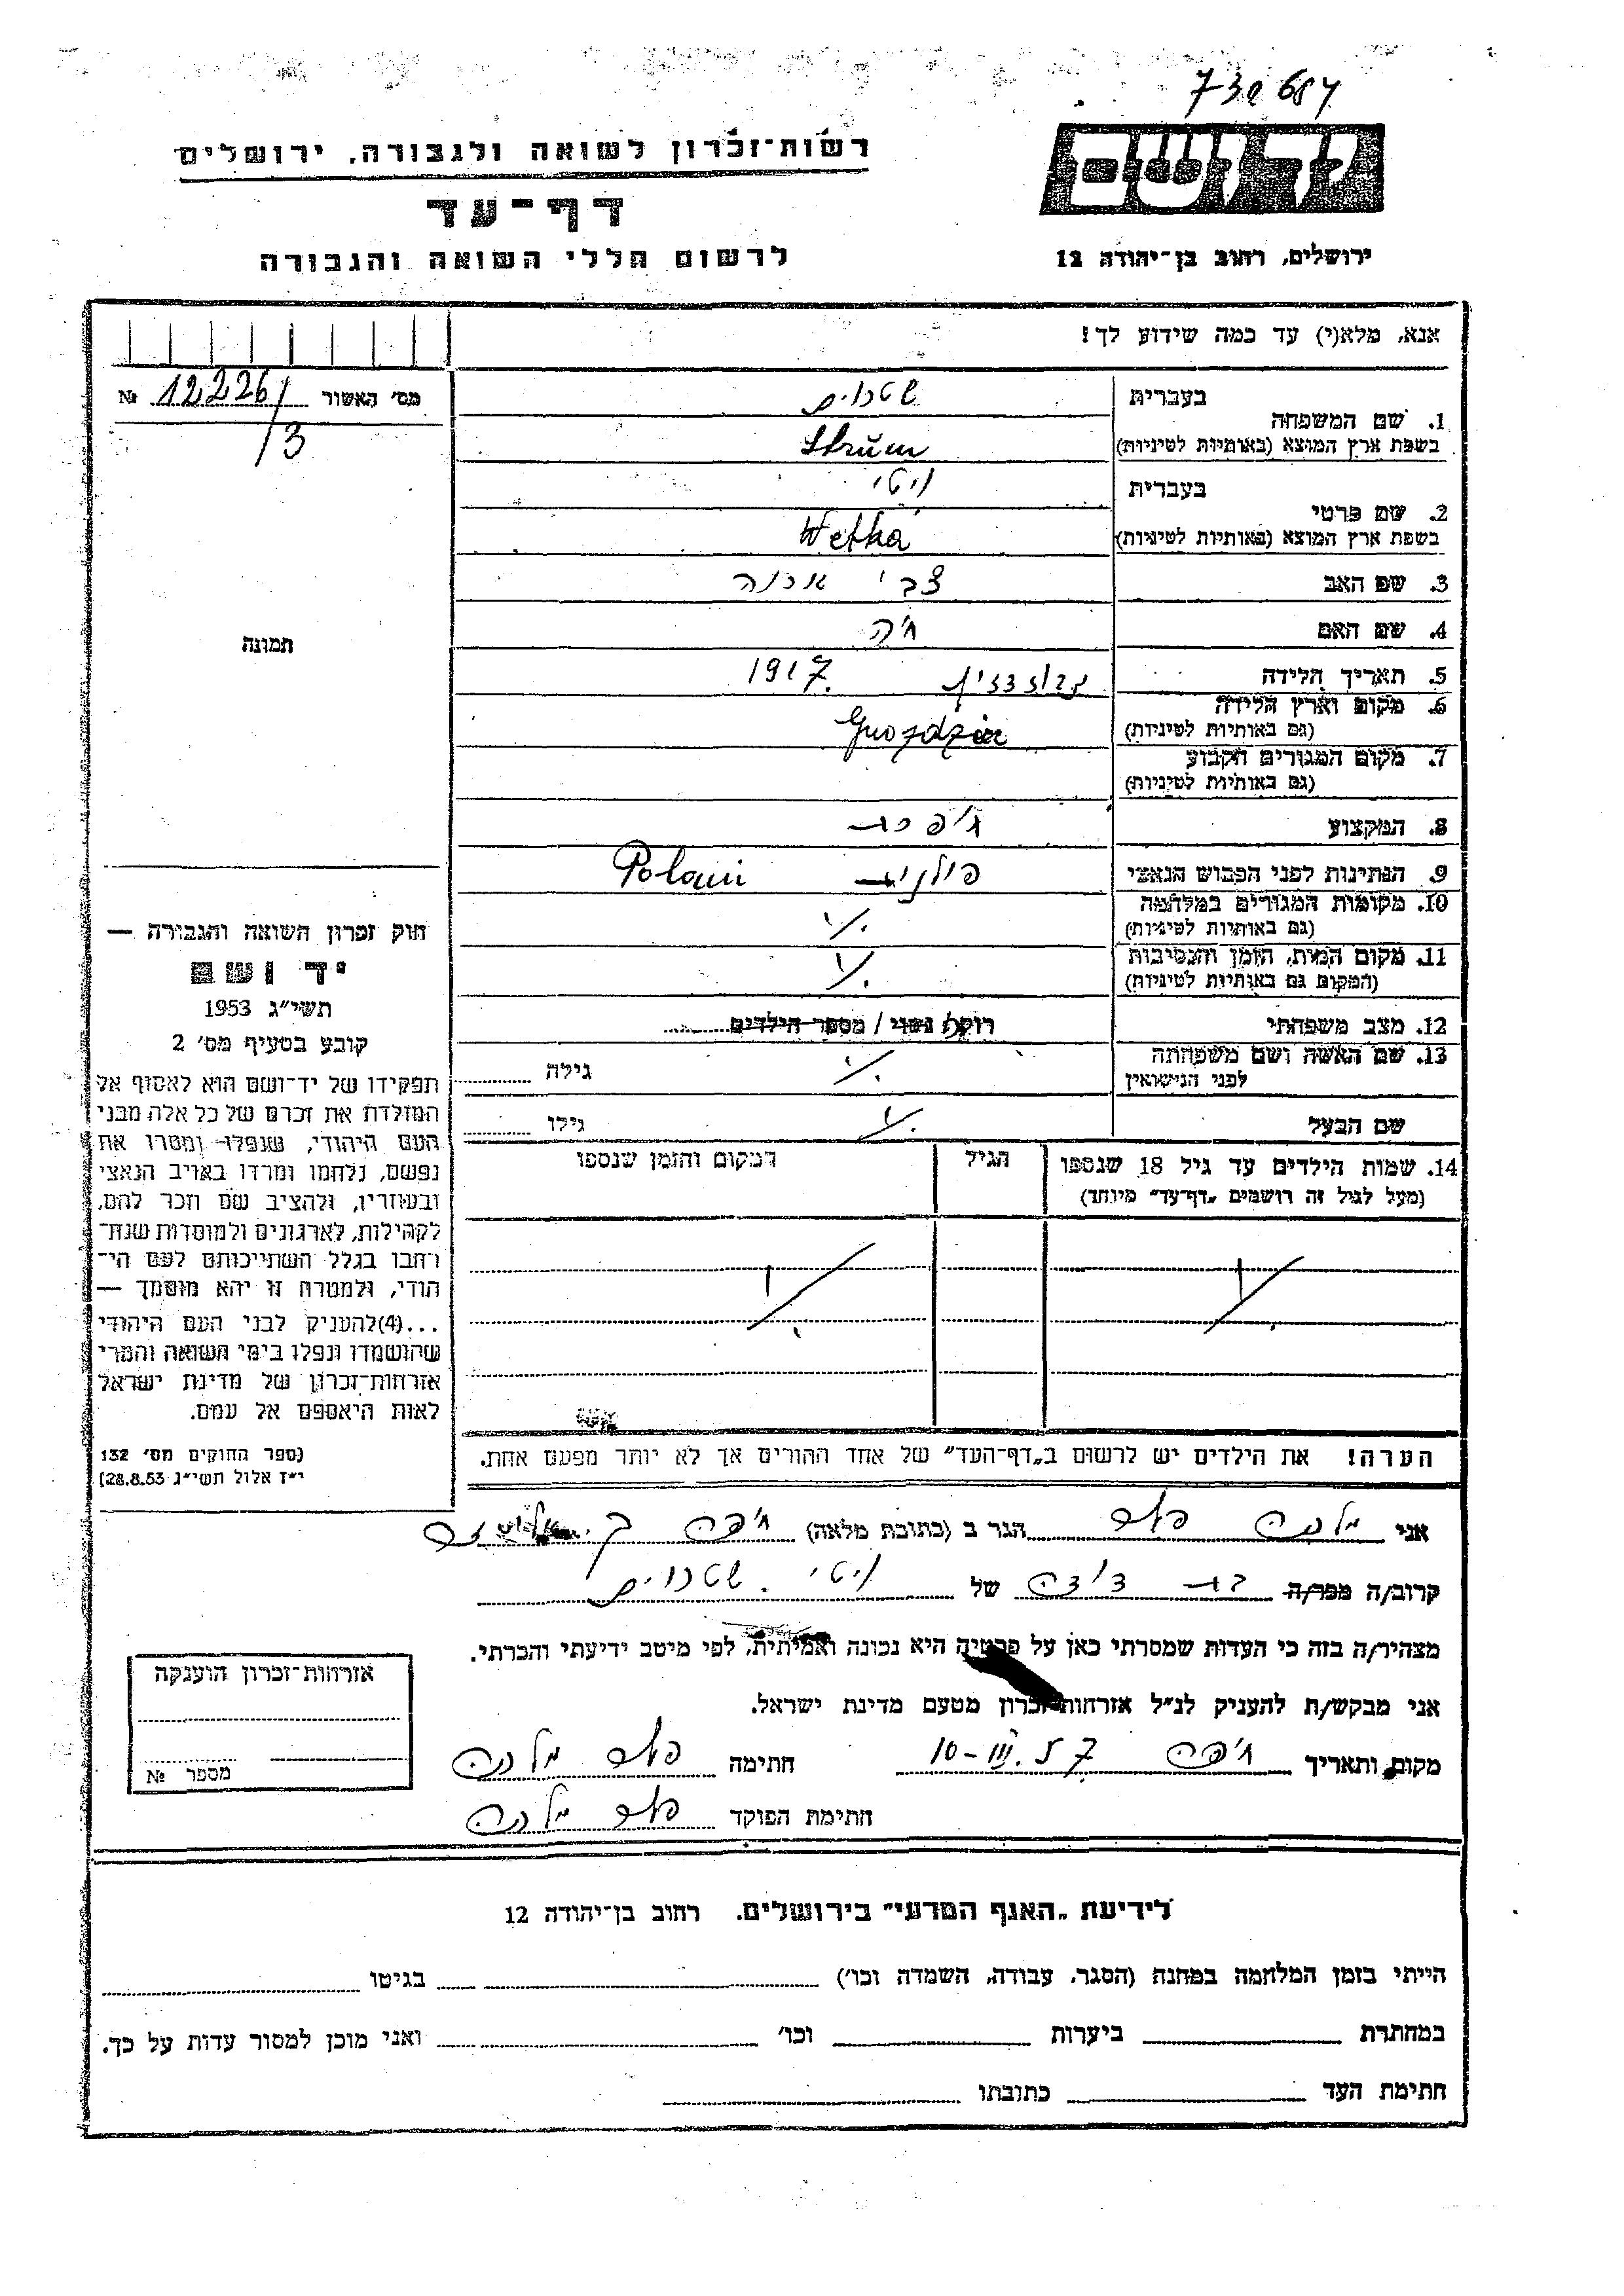 730684
רשות-זכרון לשואה ולגבורה, ירושלים
יד ושם
דף-עד
לרשום חללי השואה והגבורה
ירושלים, רחוב בן-יהודה 12
אנא, מלא(י) עד כמה שידוע לך!
מס׳ האשור 12226/ №
/3
תמונה
בעברית
1. שם המשפחה
בשפת ארץ המוצא (באותיות לטיניות) Strüm
בעברית ויטי
2. שם פרטי
בשפת ארץ המוצא (באותיות לטיניות) Wetka
3. שם האב צבי
4. שם האם חיה
5. תאריך הלידה 1917
6. מקום וארץ הלידה
(גם באותיות לטיניות)
7. מקום המגורים הקבוע
(גם באותיות לטיניות)
8. המקצוע
9. הנתינות לפני הכבוש הנאצי פולנית
10. מקומות המגורים במלחמה
(גם באותיות לטיניות)
11. מקום המות, הזמן והנסיבות
(המקום גם באותיות לטיניות)
12. מצב משפחתי רוק/ה נשוי / מספר הילדים
13. שם האשה ושם משפחתה גילה
לפני הנישואין
שם הבעל גילו
14. שמות הילדים עד גיל 18 שנספו הגיל המקום והזמן שנספו
(מעל לגיל זה רושמים „דף-עד״ מיוחד)
הערה! את הילדים יש לרשום ב„דף-העד״ של אחד ההורים אך לא יותר מפעם אחת.
חוק זכרון השואה והגבורה —
יד ושם
תשי״ג 1953
קובע בסעיף מס׳ 2
תפקידו של יד-ושם הוא לאסוף אל
המולדת את זכרם של כל אלה מבני
העם היהודי, שנפלו ומסרו את
נפשם, נלחמו ומרדו באויב הנאצי
ובעוזריו, ולהציב שם וזכר להם,
לקהילות, לארגונים ולמוסדות שנח-
רחבו בגלל השתייכותם לעם הי-
הודי, ולמטרה זו יהא מוסמך —
...(4)להעניק לבני העם היהודי
שהושמדו ונפלו בימי השואה והמרי
אזרחות-זכרון של מדינת ישראל
לאות היאספם אל עמם.
(ספר החוקים מס׳ 132
י״ז אלול תשי״ג 28.8.53)
אני מלכה הגר ב (כתובת מלאה) חיפה
קרוב/ה מכר/ה בת דודה של ויטי
מצהיר/ה בזה כי העדות שמסרתי כאן על פרטיה היא נכונה ואמיתית, לפי מיטב ידיעתי והכרתי.
אני מבקש/ת להעניק לנ״ל אזרחות-זכרון מטעם מדינת ישראל.
מקום ותאריך חיפה 10-III.57 חתימה מלכה
חתימת הפוקד מלכה
אזרחות-זכרון הוענקה
מספר №
לידיעת „האגף המדעי״ בירושלים, רחוב בן-יהודה 12
הייתי בזמן המלחמה במחנה (הסגר, עבודה, השמדה וכו׳) בגיטו
במחתרת ביערות וכו׳ ואני מוכן למסור עדות על כך.
חתימת העד כתובתו